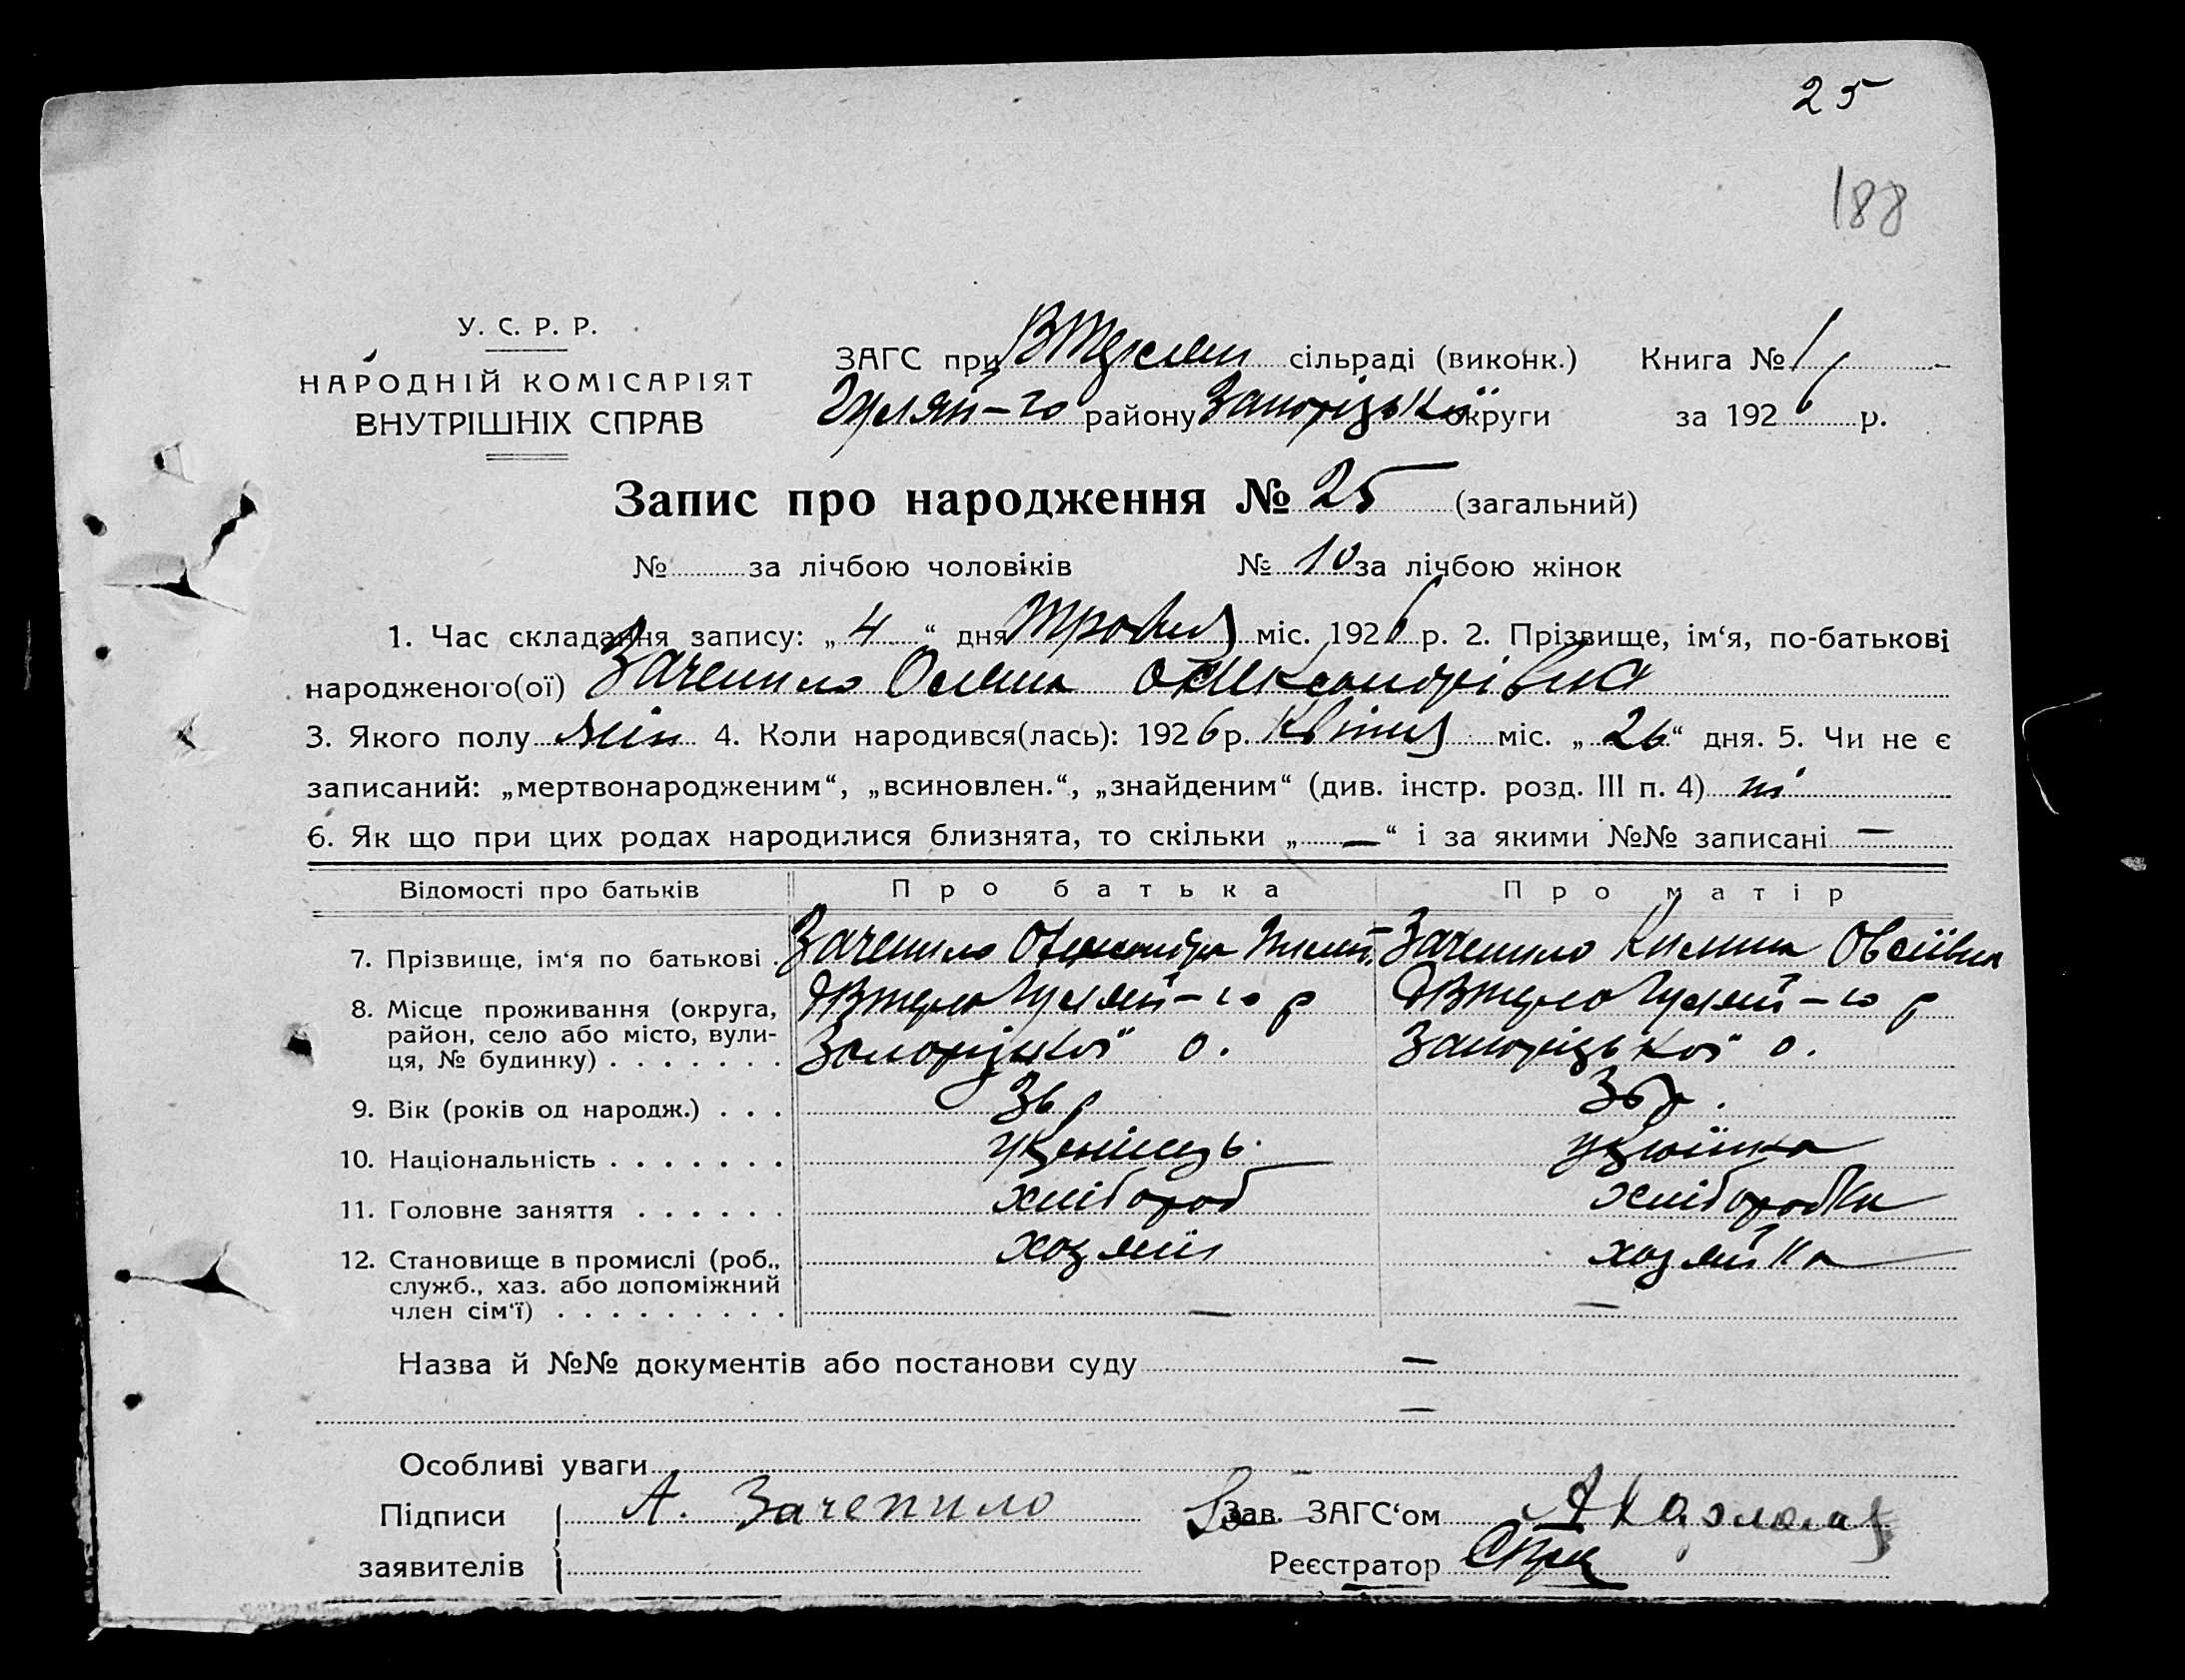 25
188
У. С. Р. Р.
НАРОДНІЙ КОМІСАРІЯТ
ВНУТРІШНІХ СПРАВ
ЗАГС при сільраді (виконк.) Книга № 1
Гуляй-го району Запорізької округи за 1926 р.
Запис про народження № 25 (загальний)
№ за лічбою чоловіків № 10 за лічбою жінок
1. Час складання запису: „4“ дня Травня міс. 1926 р. 2. Прізвище, ім‘я, по-батькові
народженого(ої) Зачепило Олена Олександрівна
3. Якого полу жін 4. Коли народився(лась): 1926 р. Квітня міс. „26“ дня. 5. Чи не є
записаний: „мертвонародженим“, „всиновлен.“, „знайденим“ (див. інстр. розд. III п. 4) ні
6. Як що при цих родах народилися близнята, то скільки „—“ і за якими №№ записані —
Відомості про батьків Про батька Про матір
7. Прізвище, ім‘я по батькові . Зачепило Олександр Зачепило Килина Овсіївна
8. Місце проживання (округа,
район, село або місто, вули-
ця, № будинку) . . . . . . .
Гуляй-го р Гуляй-го р
Запоріцкої о. Запорізької о.
9. Вік (років од народж.) . . . 36 р 36 р.
10. Національність . . . . . . .
11. Головне заняття . . . . . . хлібороб хліборобка
12. Становище в промислі (роб., хозяїн хозяйка
служб., хаз. або допоміжний
член сім‘ї) . . . . . . . . . — —
Назва й №№ документів або постанови суду —
—
Особливі уваги —
Підписи А. Зачепило Зав. ЗАГС‘ом
заявителів Реєстратор